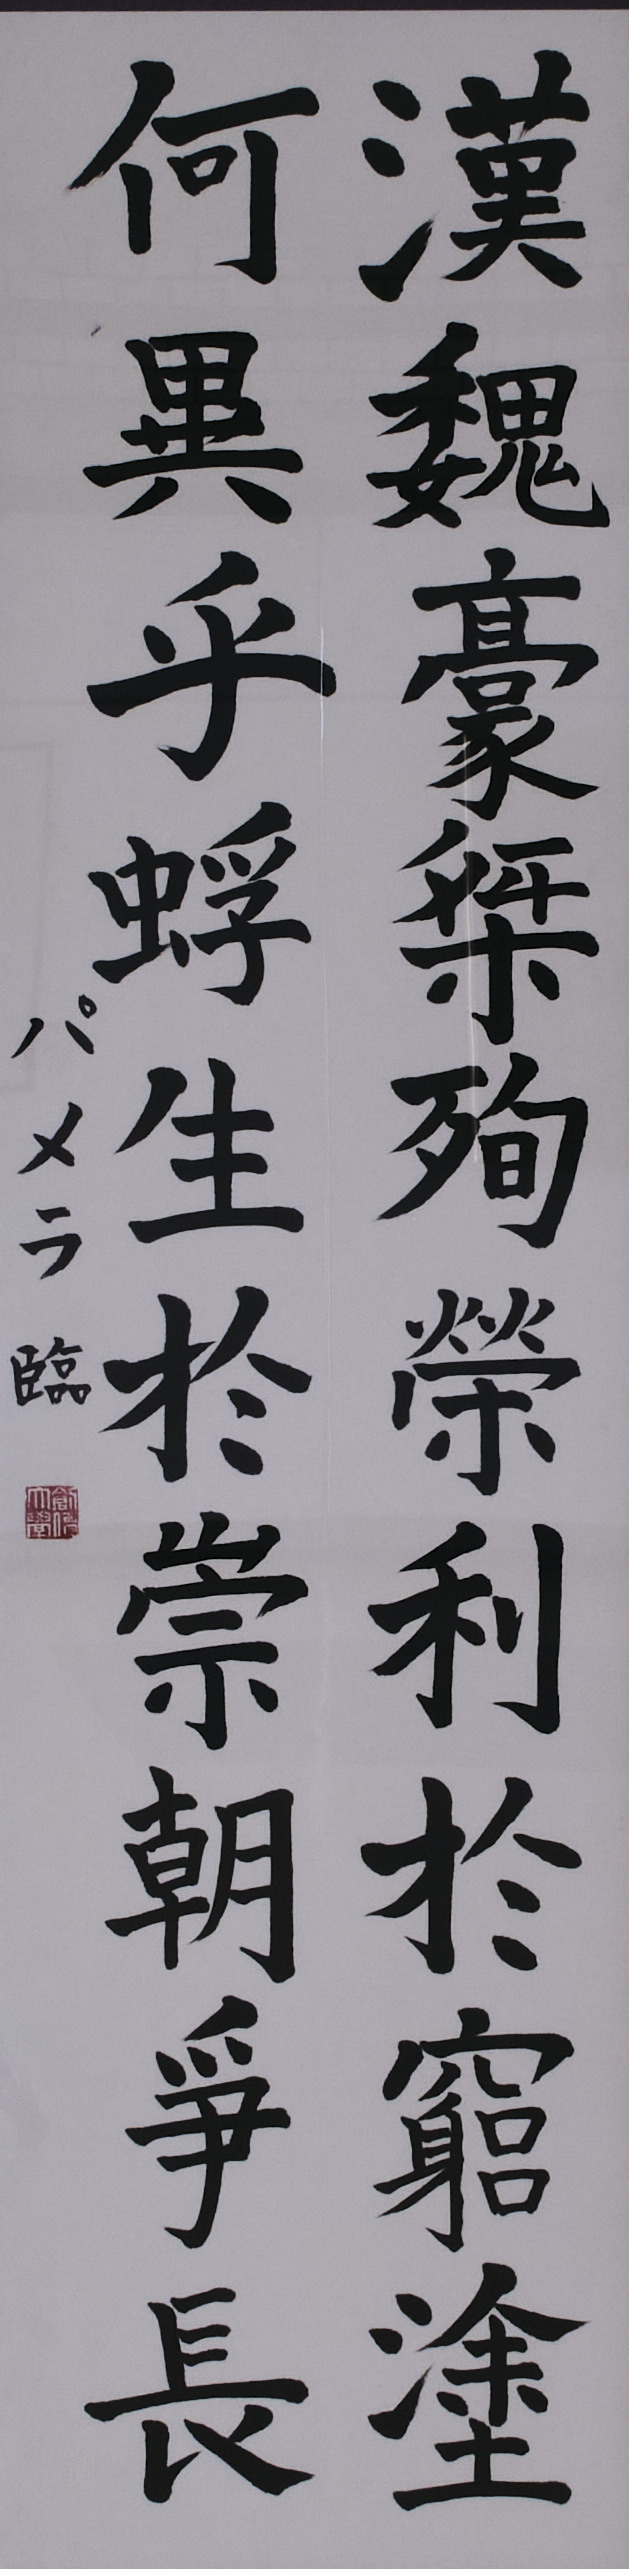 漢魏豪桀殉榮利於窮塗
何異乎蜉生於崇朝爭長
パメラ臨